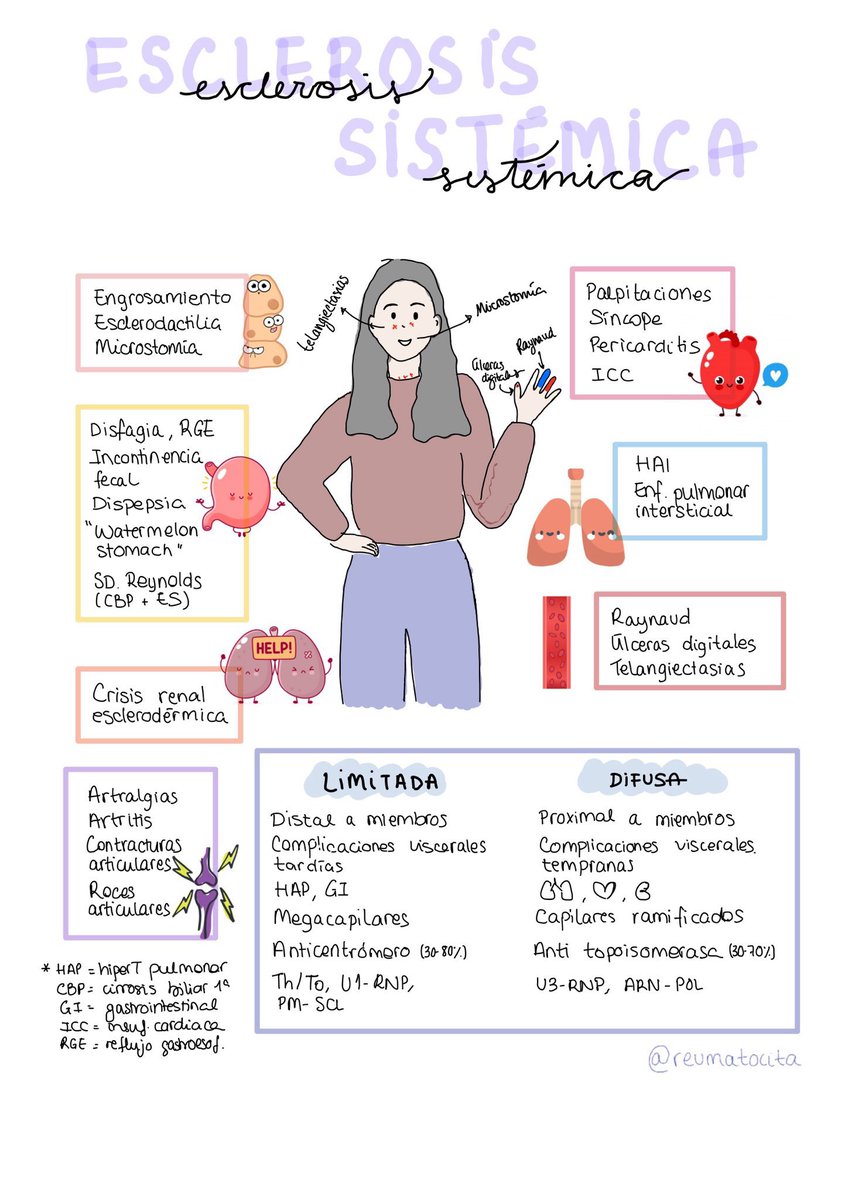 ESCLEROSIS
esclerosis
SISTÉMICA
sistémica
Engrosamiento
Esclerodactilia
Microstomía
telangiectasias
Microstomía
Raynaud
Úlceras
digitales
Palpitaciones
Síncope
Pericarditis
ICC
Disfagia, RGE
Incontinencia
fecal
Dispepsia
"Watermelon
stomach"
SD. Reynolds
(CBP + ES)
HAI
Enf. pulmonar
intersticial
HELP!
Raynaud
Úlceras digitales
Telangiectasias
Crisis renal
esclerodérmica
Artralgias
Artritis
Contracturas
articulares
Roces
articulares
LIMITADA
Distal a miembros
Complicaciones viscerales
tardías
HAP, GI
Megacapilares
Anticentrómero (30-80%)
Th/To, U1-RNP,
PM-Scl
DIFUSA
Proximal a miembros
Complicaciones viscerales
tempranas
Capilares ramificados
Anti topoisomerasa (30-70%)
U3-RNP, ARN-POL
* HAP = hiperT pulmonar
CBP = cirrosis biliar 1ª
GI = gastrointestinal
ICC = insuf. cardiaca
RGE = reflujo gastroesof.
@reumatocita